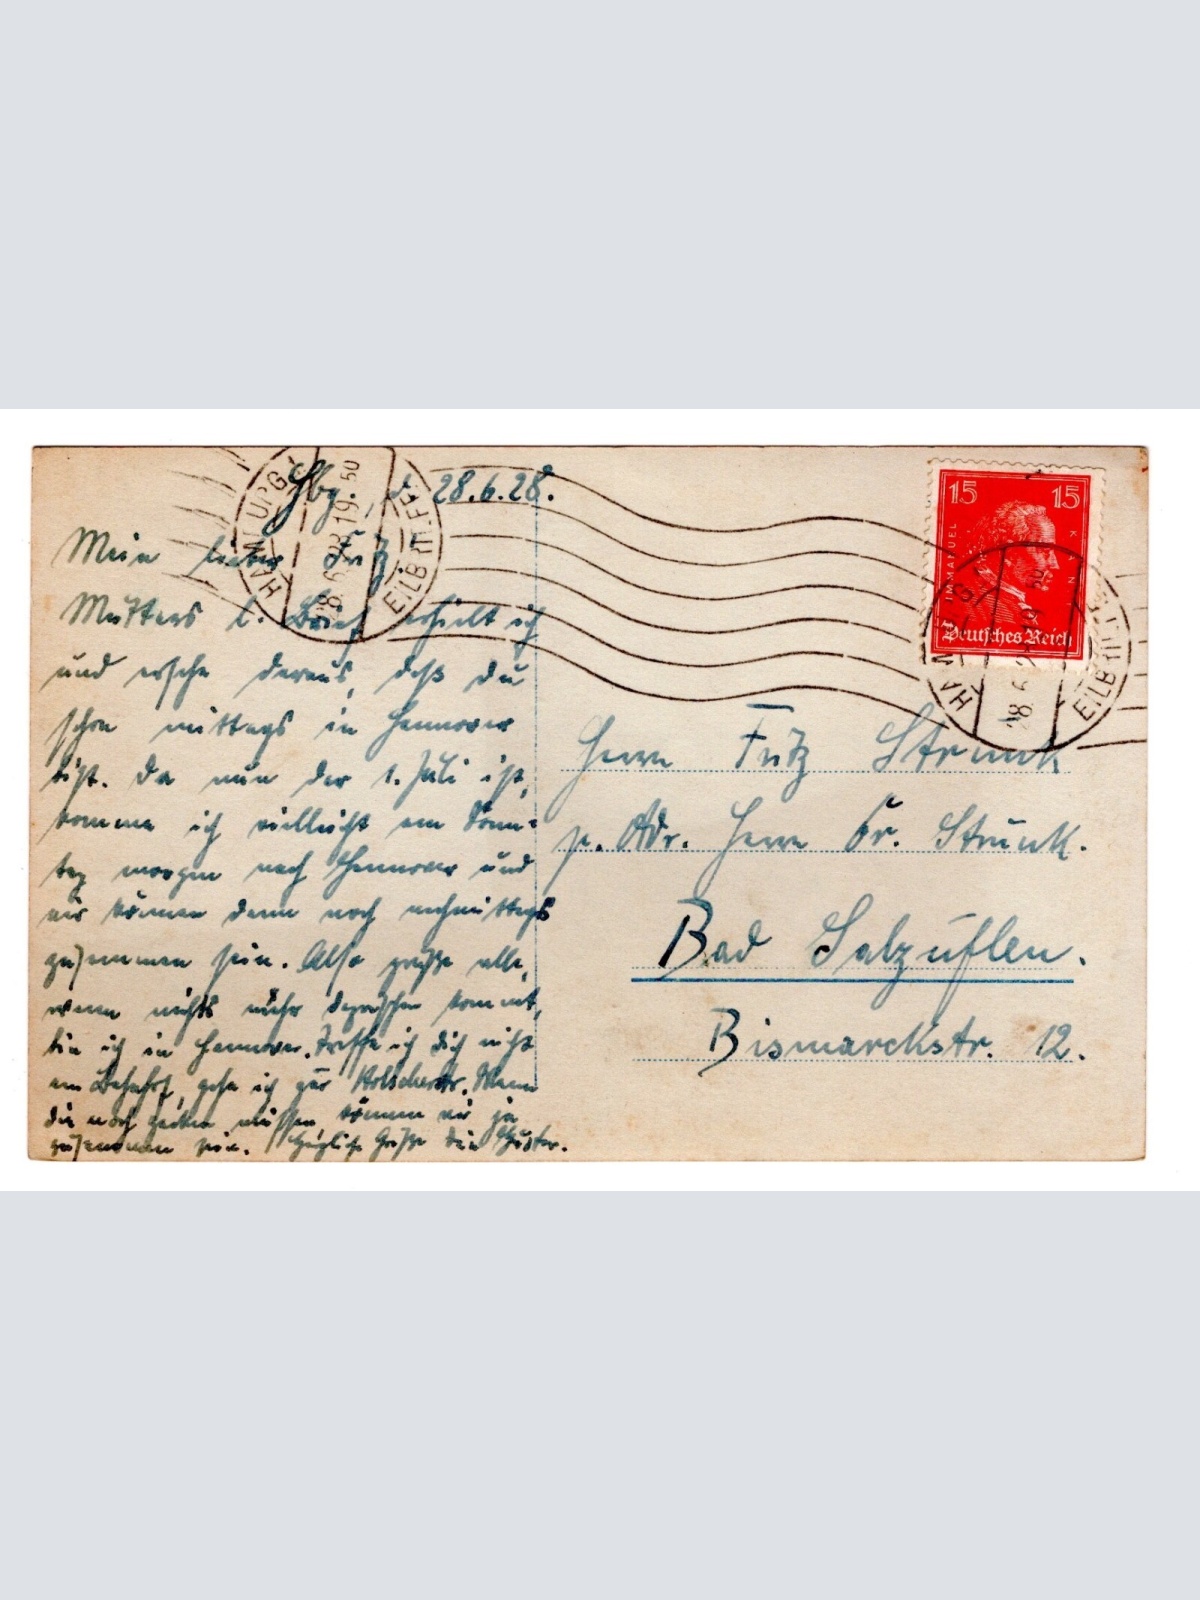 Hbg., d. 28.6.28.
Mein lieber Fritz!
Mutters l. Brief erhielt ich
und ersehe daraus, daß Du
schon mittags in Hannover
bist. Da nun der 1. Juli ist,
komme ich vielleicht am Sonn-
tag morgen nach Hannover und
wir können dann noch nachmittags
zusammen sein. Also grüße alle,
wenn nichts mehr dazwischen kommt,
bin ich in Hannover. Treffe ich Dich nicht
am Bahnhof, gehe ich zur. Wenn
die noch müssen können wir ja
zusammen sein. Herzliche Grüße Dein
HAMBURG 1
28.6.28 19-50
EILB.ITT.FR.
15 15
IMMANUEL KANT
Deutsches Reich
HAMBURG 1
28.6.28 19-50
EILB.ITT.FR.
Herrn Fritz Strunk
p. Adr. Herrn Gr. Strunk.
Bad Salzuflen.
Bismarckstr. 12.